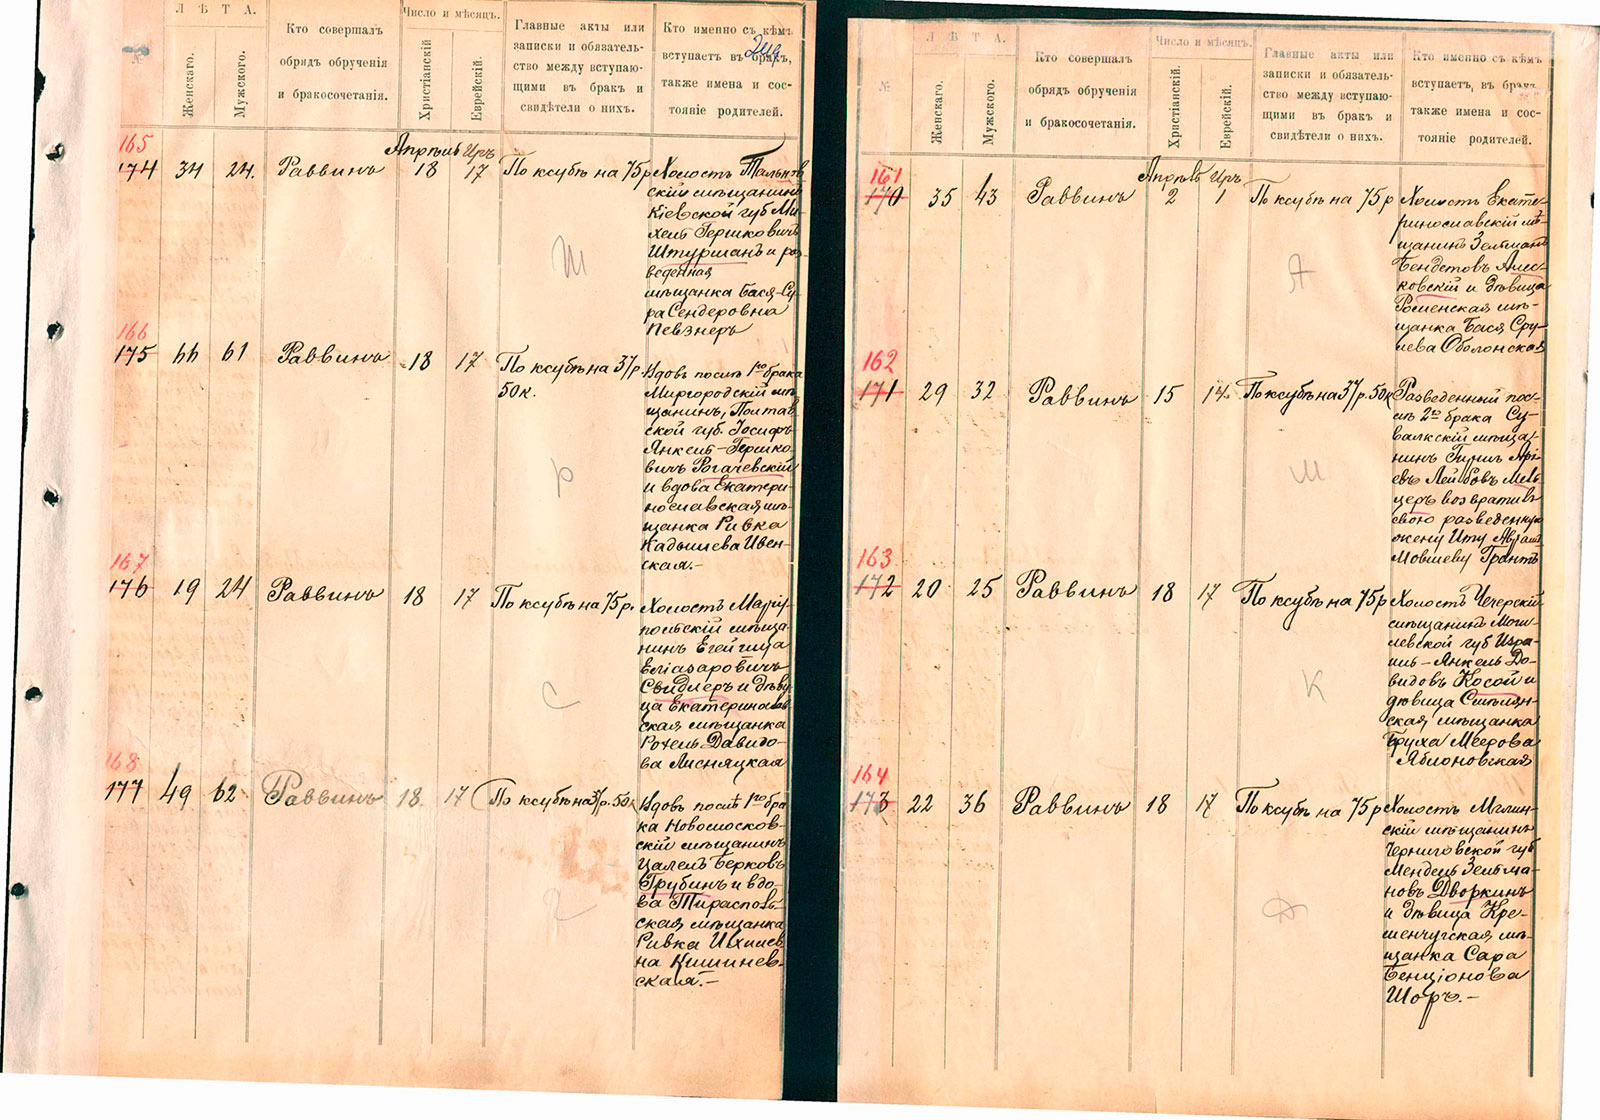 Л Ѣ Т А.
№
Женскаго.
Мужского.
Кто совершалъ
обрядъ обрученія
и бракосочетанія.
Число и мѣсяцъ.
Христіанскій
Еврейскій.
Главные акты или
записки и обязатель-
ство между вступаю-
щими въ бракъ и
свидѣтели о нихъ.
Кто именно съ кѣмъ
вступаетъ въ бракъ,
также имена и сос-
тояніе родителей.
165
174 34 24. Раввинъ Апрѣль 18 Иръ 17 По ксубѣ на 75р
Холостъ Тальнов
скій мѣщанинъ
Кіевской губ Ми-
хель Гершковичъ
Штурманъ и раз-
веденная
мѣщанка Бася-Су-
ра Сендеровна
Певзнеръ
166
175 66 61 Раввинъ 18 17 По ксубѣ на 37р.
50к.
Вдовъ послѣ 1го брака
Миргородскій мѣ-
щанинъ, Полтав-
ской губ. Іосифъ
Янкель-Гершко-
вичъ Рогачевскій
и вдова Екатери-
нославская мѣ-
щанка Ривка
Кадышева Ивен-
ская.-
167
176 19 24 Раввинъ 18 17 По ксубѣ на 75р.
Холостъ Маріу-
польскій мѣща-
нинъ
Еліазаровичъ
Свидлеръ и дѣви-
ца Екатеринослав-
ская мѣщанка
Рохель Давидо-
ва Лисняцкая
168
177 49 62 Раввинъ 18. 17 По ксубѣ на 37р. 50к
Вдовъ послѣ 1го бра-
ка Новомосков-
скій мѣщанинъ
Цалель Берковъ
Грубинъ и вдо-
ва Тирасполь-
ская мѣщанка
Ривка Ихилев-
на Кишинев-
ская.-
Ш
Р
С
Г
Л Ѣ Т А.
№
Женскаго.
Мужского.
Кто совершалъ
обрядъ обрученія
и бракосочетанія.
Число и мѣсяцъ.
Христіанскій.
Еврейскій.
Главные акты или
записки и обязатель-
ство между вступаю-
щими въ бракъ и
свидѣтели о нихъ.
Кто именно съ кѣмъ
вступаетъ, въ бракъ
также имена и сос-
тояніе родителей.
161
170 35 43 Раввинъ Апрѣль 2 Иръ 1 По ксубѣ на 75р
Холостъ Екате-
ринославскій мѣ-
щанинъ Зельманъ
Бендетовъ Алеш-
ковскій и дѣвица
Роменская мѣ-
щанка Бася Сру-
лева Оболонская
162
171 29 32 Раввинъ 15 14. По ксубѣ на 37р. 50к
Разведенный пос-
лѣ 2го брака Су-
валкскій мѣща-
нинъ Гиршъ Арі-
евъ Лейбовъ Мель-
церъ возвративъ
свою разведенную
жену Иту Абрамъ
Мовшеву Грантъ
163
172 20 25 Раввинъ 18 17 По ксубѣ на 75р
Холостъ Чечерскій
мѣщанинъ Моги-
левской губ Изра-
иль-Янкель До-
видовъ Косой и
дѣвица
ская, мѣщанка
Бруха Меерова
Яблоновская
164
173 22 36 Раввинъ 18 17 По ксубѣ на 75р
Холостъ Мглин-
скій мѣщанинъ
Черниговской губ
Мендель Зельма-
новъ Дворкинъ
и дѣвица Кре-
менчугская, мѣ-
щанка Сара
Бенціонова
Шоръ.-
А
М
К
Д